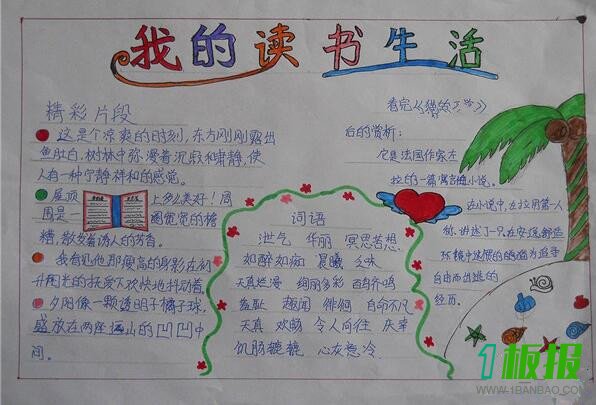 我的读书生活
精彩片段
这是个凉爽的时刻,东方刚刚露出
鱼肚白,树林中弥漫着沉寂和肃静,使
人有一种宁静祥和的感觉。
屋顶上多么美好!周
围是一圈宽宽的
糟,散发着诱人的芳香。
我看见他那瘦高的身影在初
升阳光的扶爱下欢快地抖动着
夕阳像一颗透明子橘子球,
盛放在两座远山的凹凹中
间。
词语
泄气 华丽 冥思苦想
如醉如痴 晨曦 乏味
天真烂漫 绚丽多彩 百鸟齐鸣
羞耻 趣闻 徘徊 自命不凡
天真 欢畅 令人向往 庆幸
饥肠辘辘 心灰意冷
看完《猫的
后的赏析:
它是法国作家左
拉的一篇寓言体小说。
在小说中,左拉用第一人
称讲述了一只在安逸舒适
环境中
自由而出逃的
经历。
1板报
WWW.1BANBAO.COM